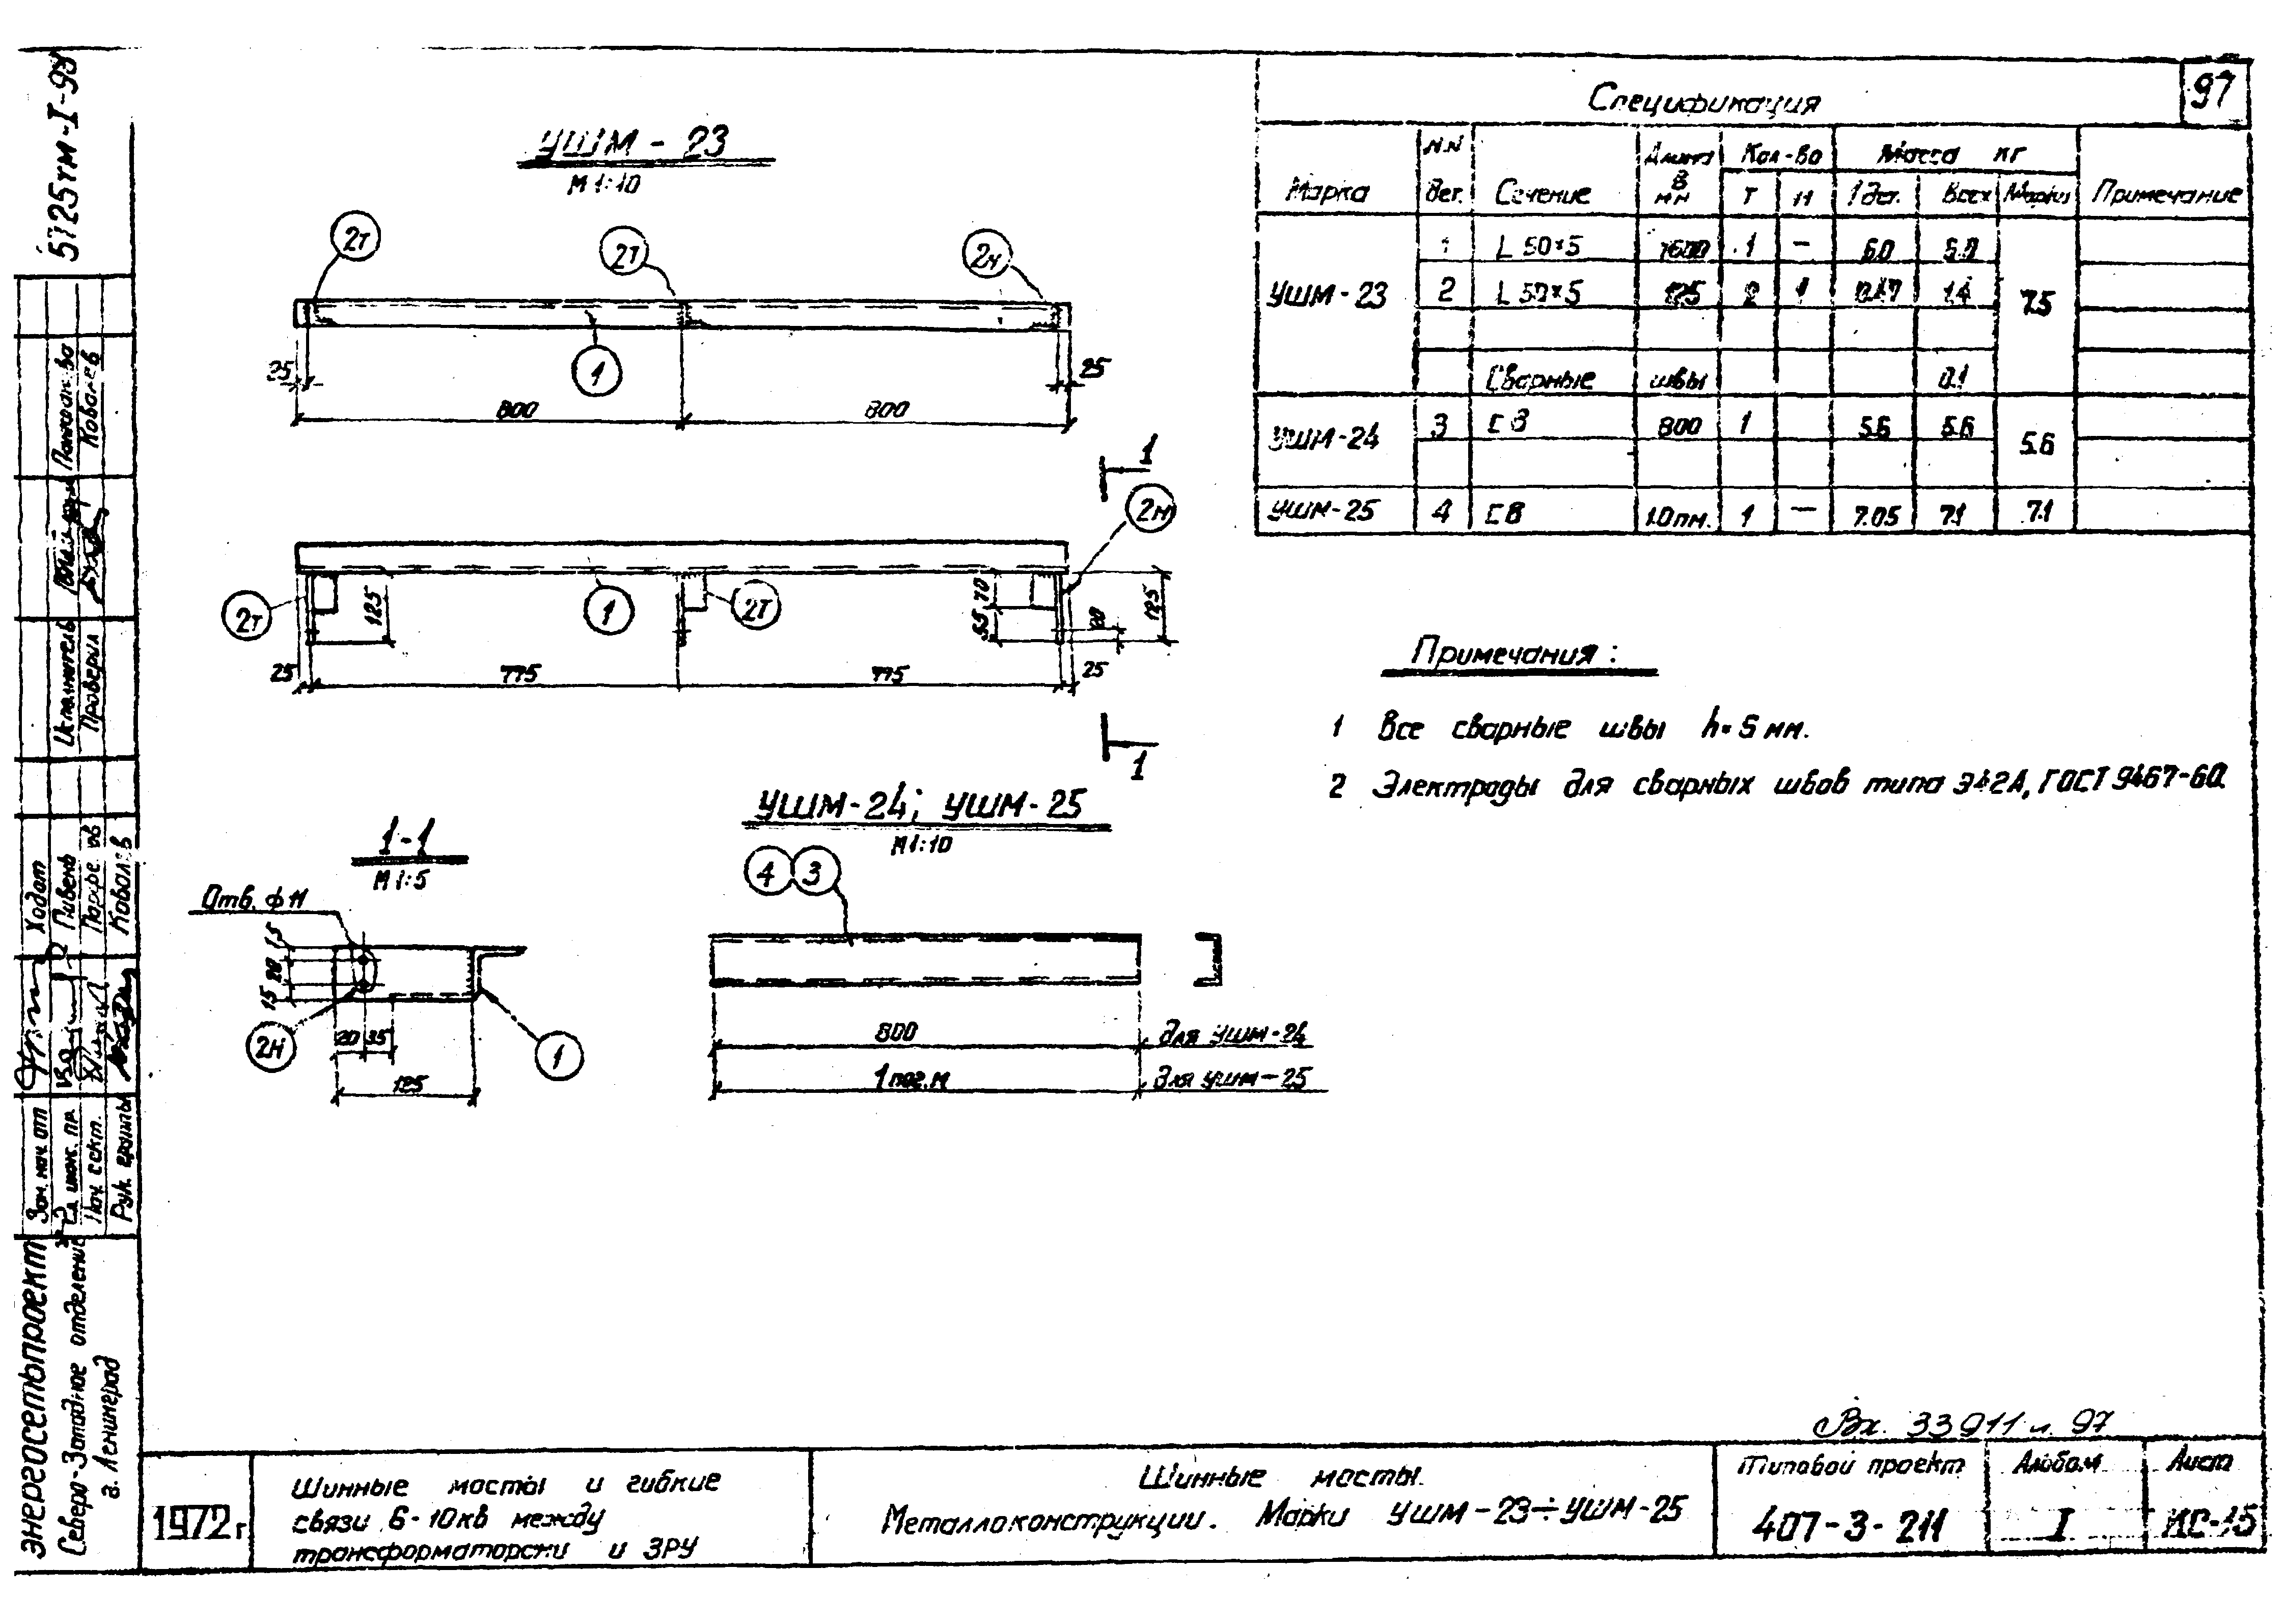 5725тм-I-98
97
УШМ - 23
М 1:10
2т
2т
2н
1
25
25
800
800
1
2н
2т
1
2т
125
70
55
20
125
25
775
775
25
1
1-1
М 1:5
Отв. ф 11
15
20
15
2н
20 35
1
125
УШМ-24; УШМ-25
М 1:10
4
3
800
для УШМ-24
1 пог. м
для УШМ-25
Спецификация
Марка
N.N дет.
Сечение
Длина в мм
Кол-во
Масса кг
Примечание
т
н
1 дет.
Всех
Марки
УШМ-23
1 L 50×5 1600 1 – 6.0 6.0
2 L 50×5 125 2 1 0.47 1.4
7.5
Сварные швы 0.1
УШМ-24 3 С 8 800 1 5.6 5.6 5.6
УШМ-25 4 С 8 1.0 пм. 1 – 7.05 7.1 7.1
Примечания:
1 Все сварные швы h=5 мм.
2 Электроды для сварных швов типа Э42А, ГОСТ 9467-60.
Вх. 33911 л. 97
1972 г.
Шинные мосты и гибкие
связи 6-10кв между
трансформаторами и ЗРУ
Шинные мосты.
Металлоконструкции. Марки УШМ-23÷УШМ-25
Типовой проект
407-3-211
Альбом
I
Лист
КС-15
Ковалев
Исполнитель
Проверил
Ходот
Пивень
Ковалев
Зам. нач. от
Гл. инж. пр.
Нач. сект.
Рук. группы
Энергосетьпроект
Северо-Западное отделение
г. Ленинград